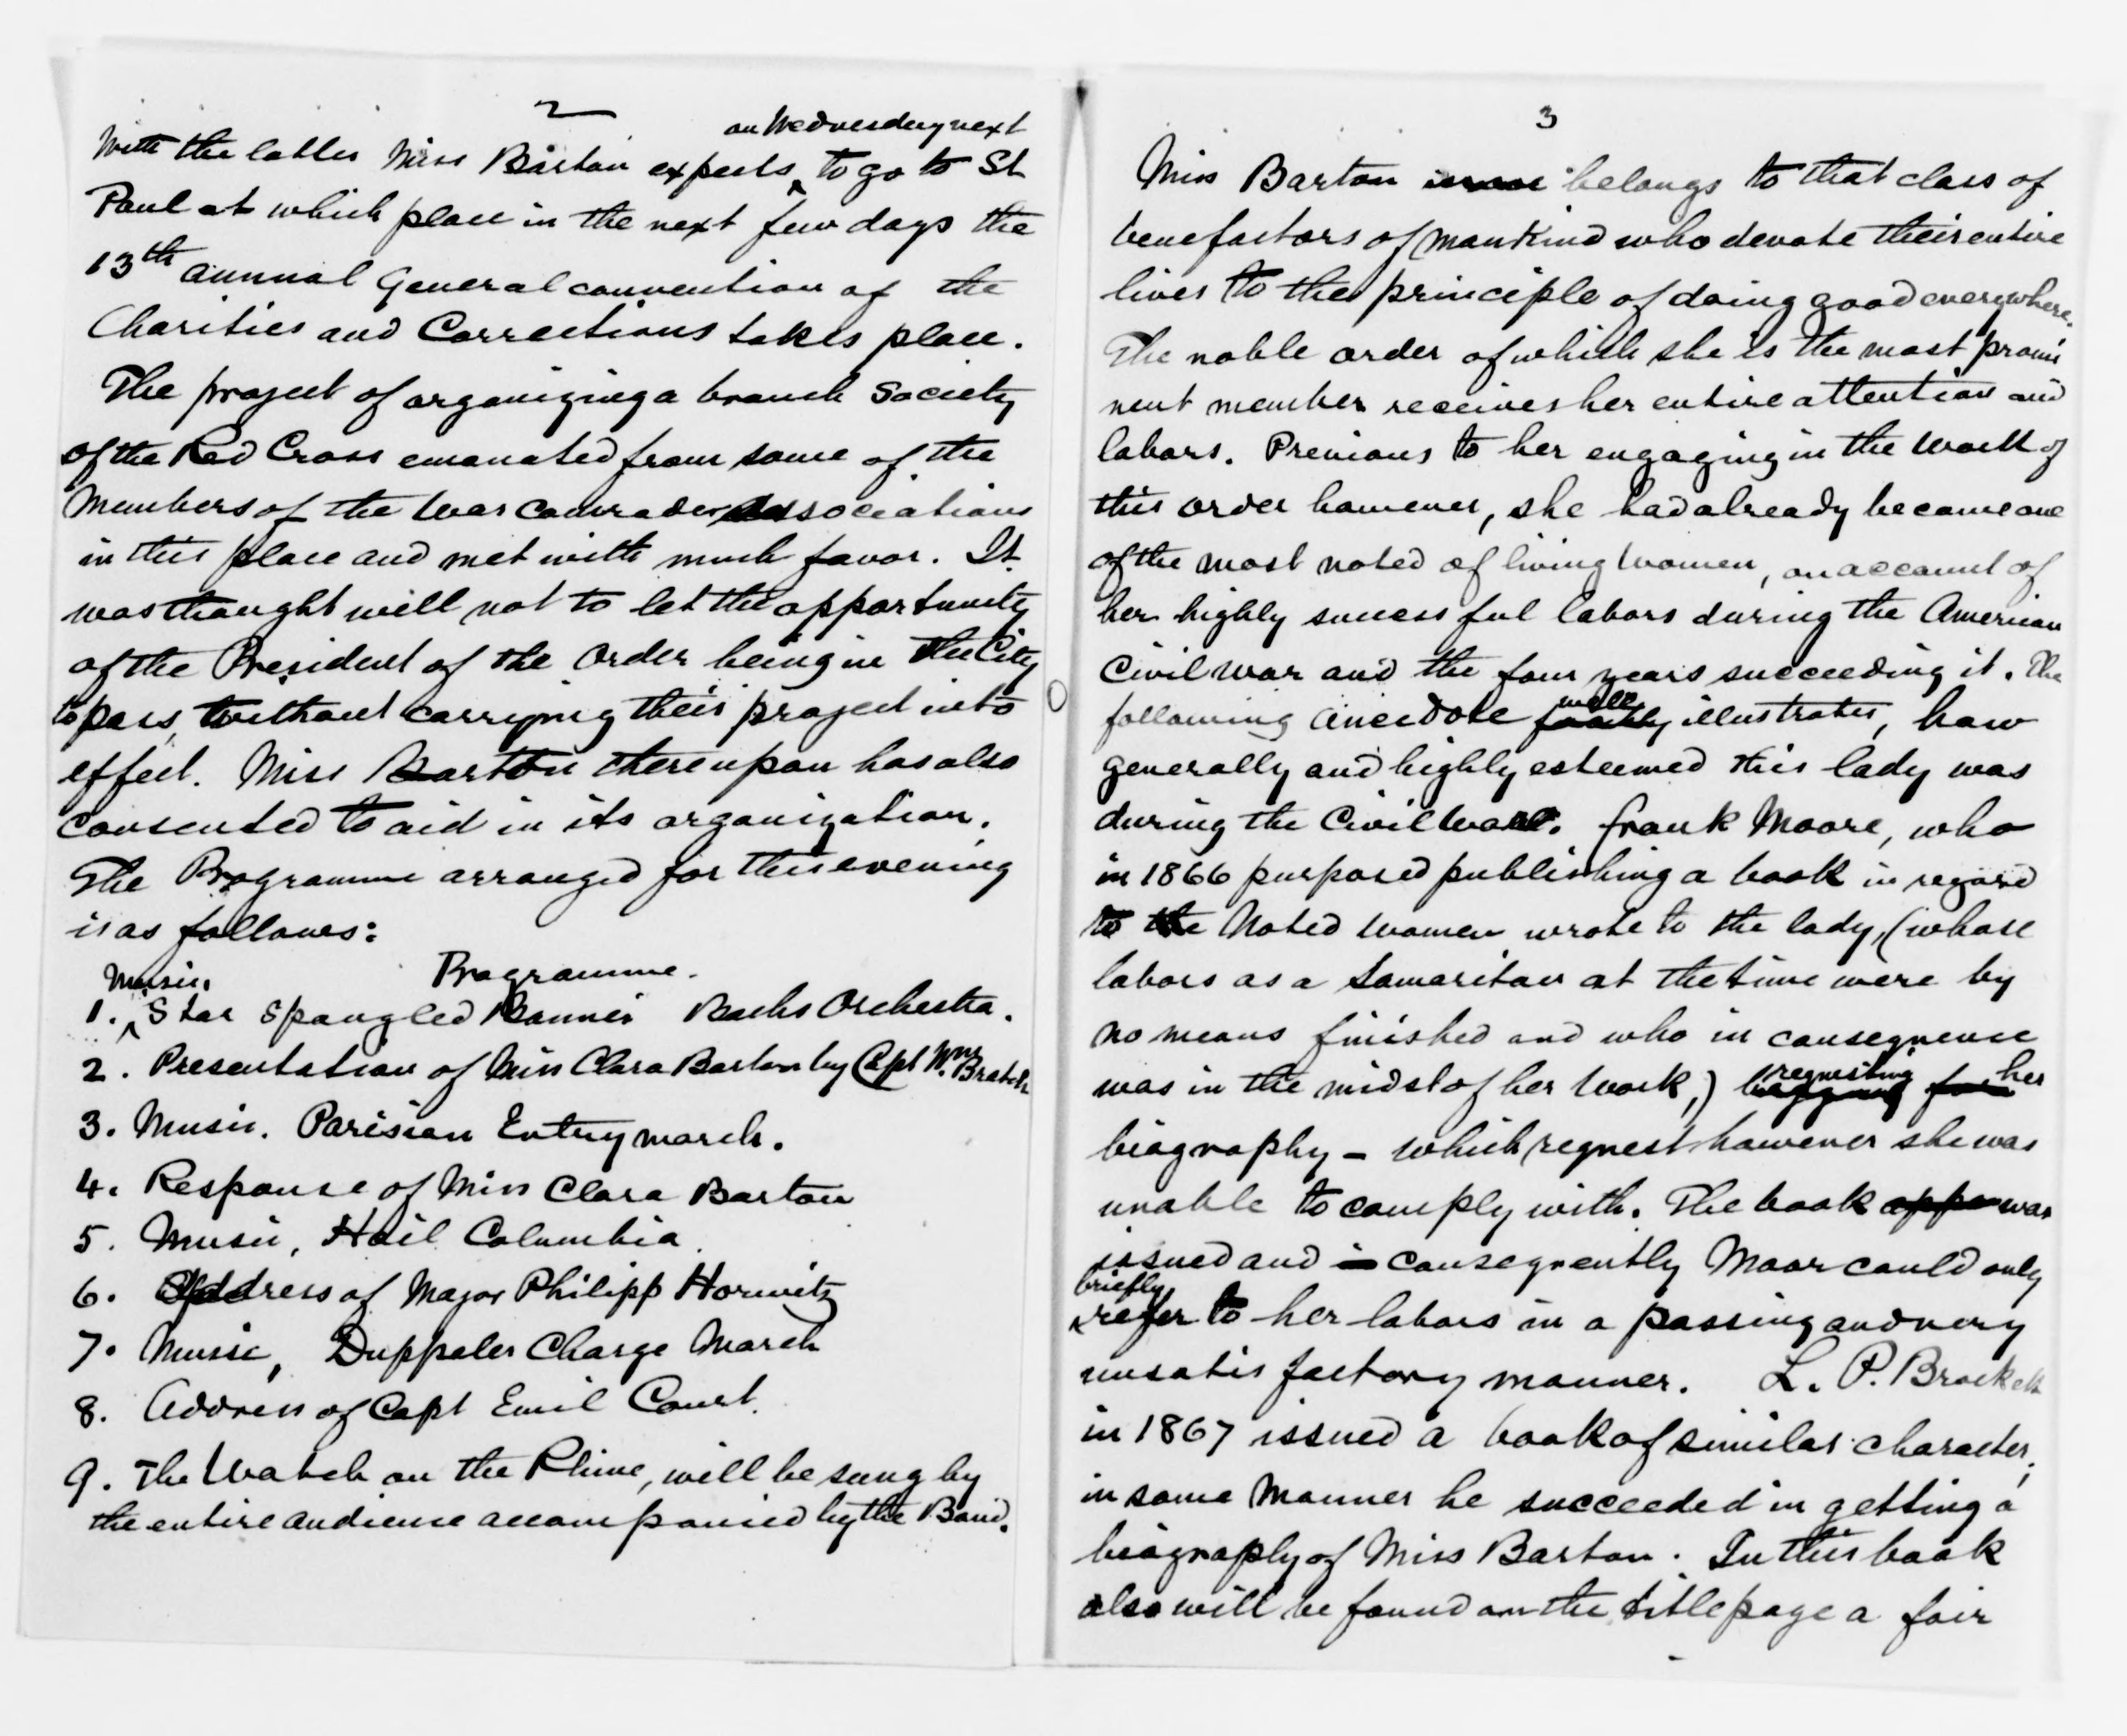 2
on Wednesday next
With the latter Miss Barton expects ^ to go to St
Paul at which place in the next few days the
13th annual General convention of the
Charities and Corrections takes place.
The project of organizing a branch Society
of the Red Cross emanated from some of the
Members of the War comrades Associations
in this place and met with much favor. It
was thought well not to let the opportunity
of the President of the Order being in the City
to pass, without carrying their project into
effect. Miss Barton thereupon has also
consented to aid in its organization.
The Programme arranged for this evening
is as follows:
Programme.
Music.
1. ^ Star Spangled Banner Bachs Orchestra.
2. Presentation of Miss Clara Barton by Capt Wm Bratsh
3. Music. Parisian Entry march.
4. Response of Miss Clara Barton
5. Music, Hail Columbia.
6. Address of Major Philipp Horwitz
7. Music, Duppeler Charge March
8. Address of Capt Emil Court.
9. The Watch on the Rhine, will be sung by
the entire audience accompanied by the Band.
3
Miss Barton belongs to that class of
benefactors of mankind who devote their entire
lives to the principle of doing good everywhere.
The noble order of which she is the most promi
nent member receives her entire attention and
labors. Previous to her engaging in the work of
this order however, she had already become one
of the most noted of living women, on account of
her highly sucessful labors during the American
Civil war and the four years succeeding it. The
well
following anecdote illustrates, how
generally and highly esteemed this lady was
during the Civil War. Frank Moore, who
in 1866 purposed publishing a book in regard
to the Noted women wrote to the lady, (whose
labors as a Samaritan at the time were by
no means finished and who in consequence
requesting her
was in the midst of her work,) begging for
biography - which request however she was
unable to comply with. The book appe was
issued and i consequently Moor could only
briefly
^ refer to her labors in a passing and very
unsatisfactory manner. L. P. Brockett
in 1867 issued a book of similar character;
in some manner he succeeded in getting a
biography of Miss Barton. In this book
also will be found on the title page a fair